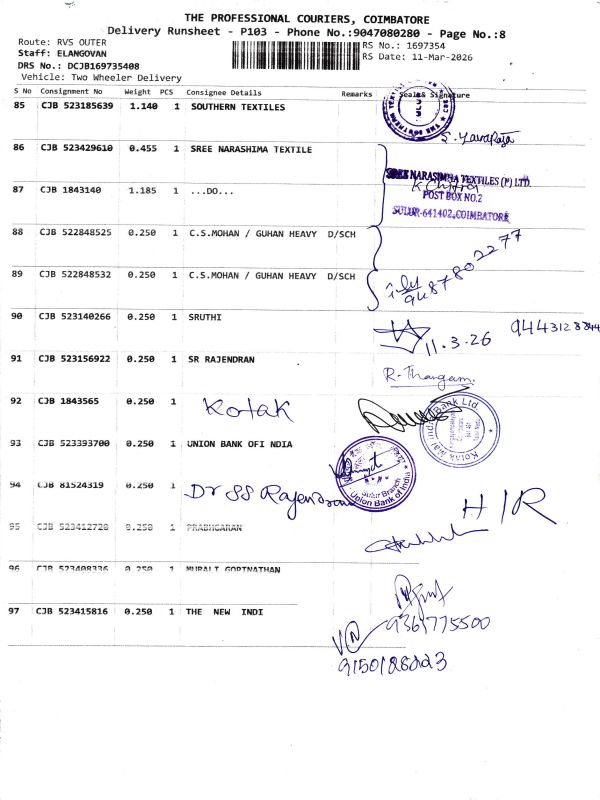 THE PROFESSIONAL COURIERS, COIMBATORE
Delivery Runsheet - P103 - Phone No.:9047080280 - Page No.:8
Route: RVS OUTER
RS No.: 1697354
Staff: ELANGOVAN
RS Date: 11-Mar-2026
DRS No.: DCJB169735408
Vehicle: Two Wheeler Delivery
S No Consignment No Weight PCS Consignee Details Remarks Seal& Signature
85 CJB 523185639 1.140 1 SOUTHERN TEXTILES
86 CJB 523429610 0.455 1 SREE NARASHIMA TEXTILE
SREE NARASIMHA TEXTILES (P) LTD.
87 CJB 1843140 1.185 1 ...DO...
POST BOX NO.2
SULUR-641402, COIMBATORE
88 CJB 522848525 0.250 1 C.S.MOHAN / GUHAN HEAVY D/SCH
89 CJB 522848532 0.250 1 C.S.MOHAN / GUHAN HEAVY D/SCH
9487802277
90 CJB 523140266 0.250 1 SRUTHI
11.3.26
91 CJB 523156922 0.250 1 SR RAJENDRAN
R-Thangam
92 CJB 1843565 0.250 1 Kotak
93 CJB 523393700 0.250 1 UNION BANK OFI NDIA
Sulur Branch
Union Bank of India
94 CJB 81524319 0.250 1 Dr SS Rajendran
H/R
95 CJB 523412728 0.250 1 PRABHGARAN
96 CJB 523408336 0.250 1 MURALI GOPINATHAN
97 CJB 523415816 0.250 1 THE NEW INDI